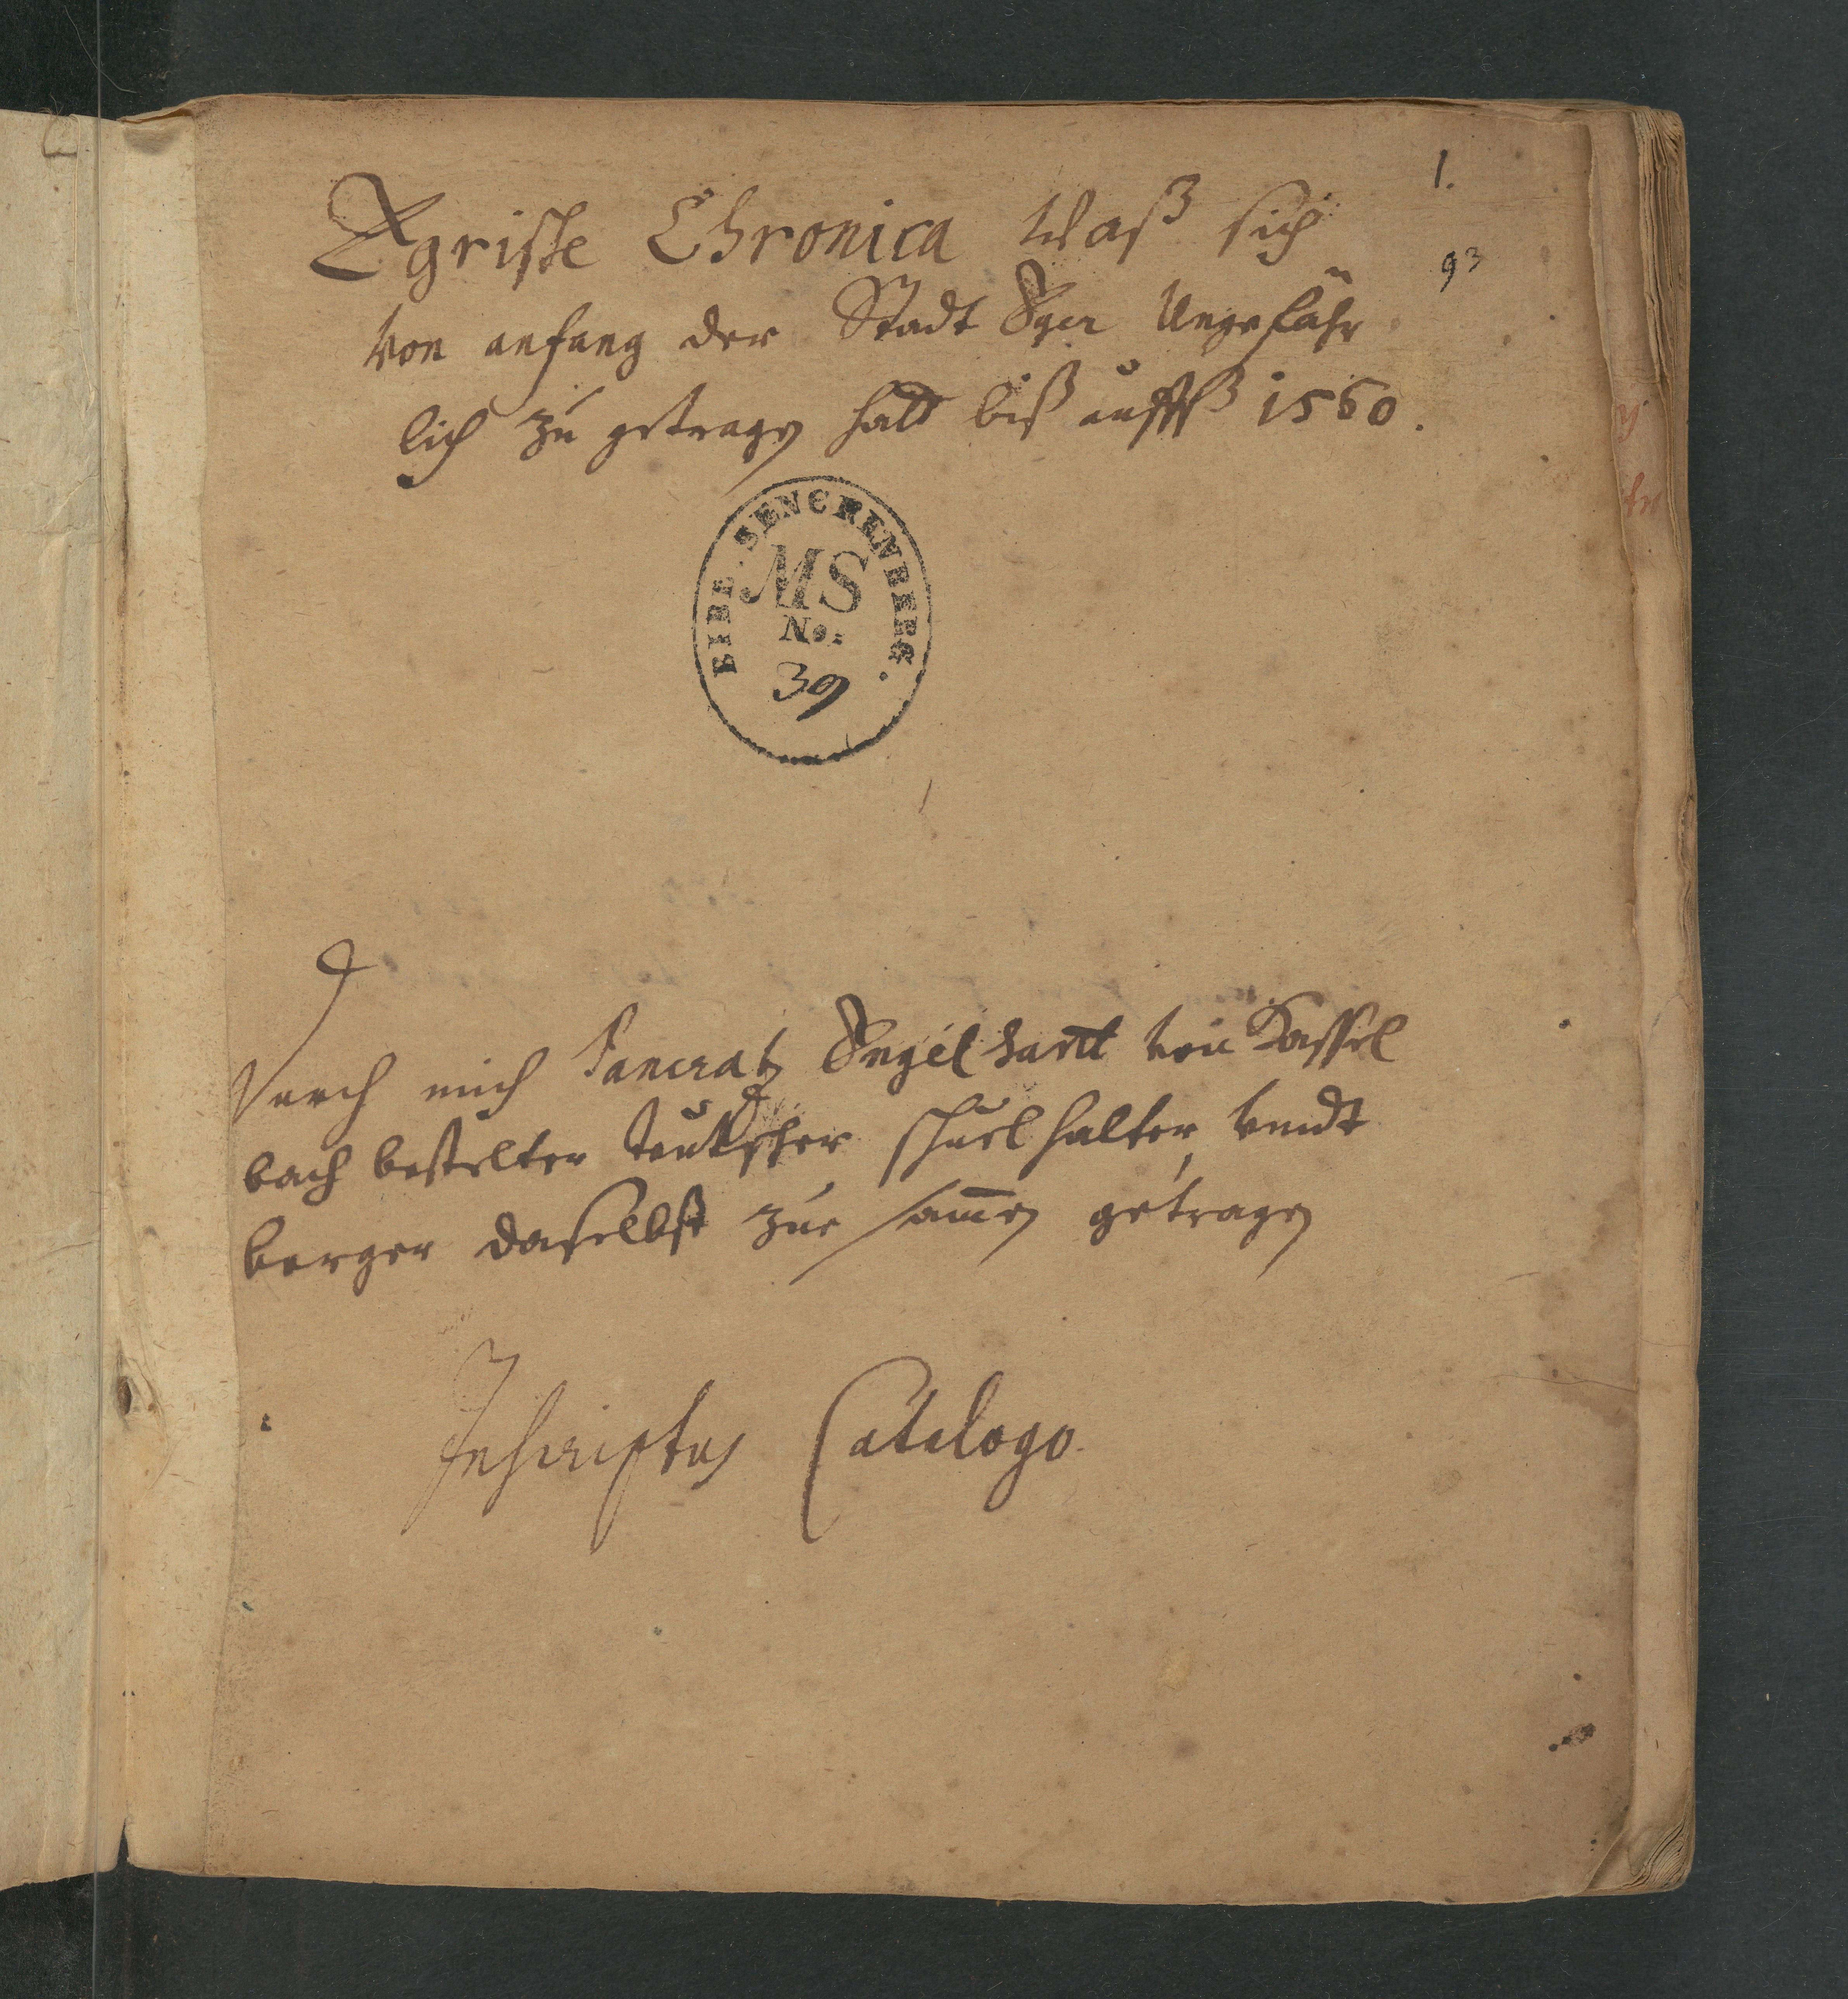 1.
Egriste Chronica Waß sich
93
Von anfang der Stadt Eger Ungefähr
lich zu getragen hatt biß auffß 1560.
BIBL. SENCKENBERG.
MS
No.
39
Durch mich Pancratz Engelhartt von Hassel
bach bestelter teutscher schuelhalter vndt
borger daselbst zue samen getragen
Inscriptus Catalogo.